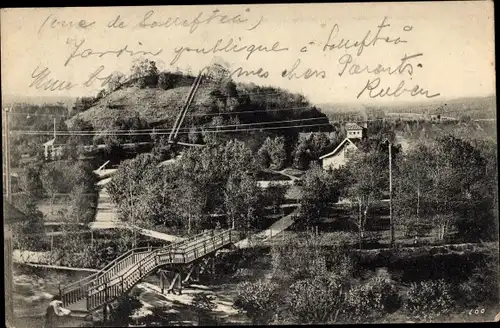 (une de Sollefteå)
Jardin publique à Sollefteå
mes chers Parents.
Ruben
100